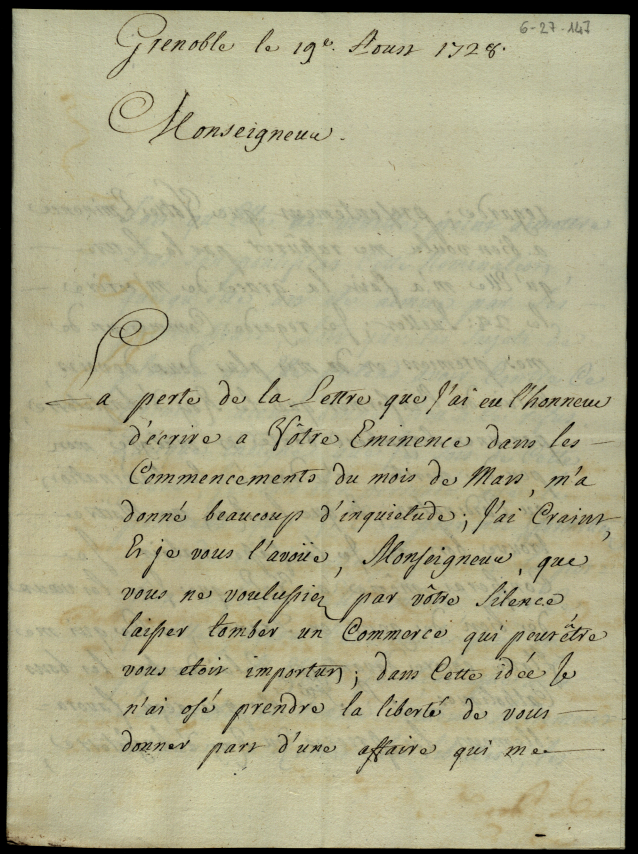 6-27-147
Grenoble le 19e. Aoust 1728.
Monseigneur.
La perte de la Lettre que J'ai eu l'honneur
d'écrire a Vôtre Eminence dans les
Commencements du mois de Mars, m'a
donné beaucoup d'inquietude; J'ai Craint,
Et je vous l'avoüe, Monseigneur, que
vous ne voulussiez par vôtre Silence
laisser tomber un Commerce qui peut être
vous etoit importun; dans Cette idée Je
n'ai osé prendre la liberté de vous
donner part d'une affaire qui me